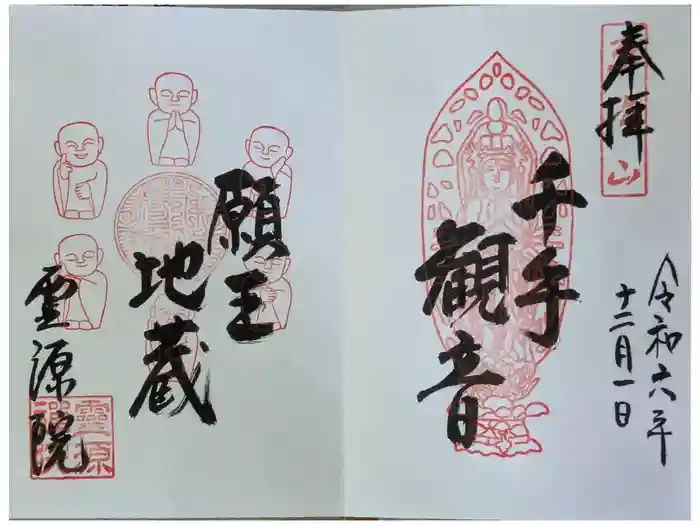 奉拝
令和六年
十二月一日
千手
観音
願王
地蔵
霊源院